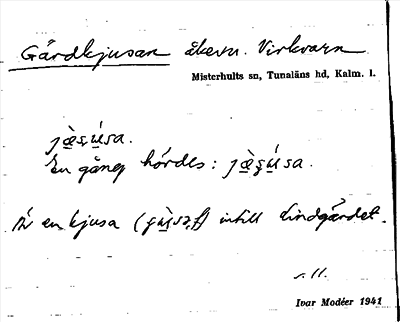 Gårdkjusan åkern. Virkvarn
Misterhults sn, Tunaläns hd, Kalm. l.
jæ̀ʂúsa.
En gång hördes: jæ̀ʂúsa.
Är en kjusa intill Lindgärdet.
Ivar Modéer 1941